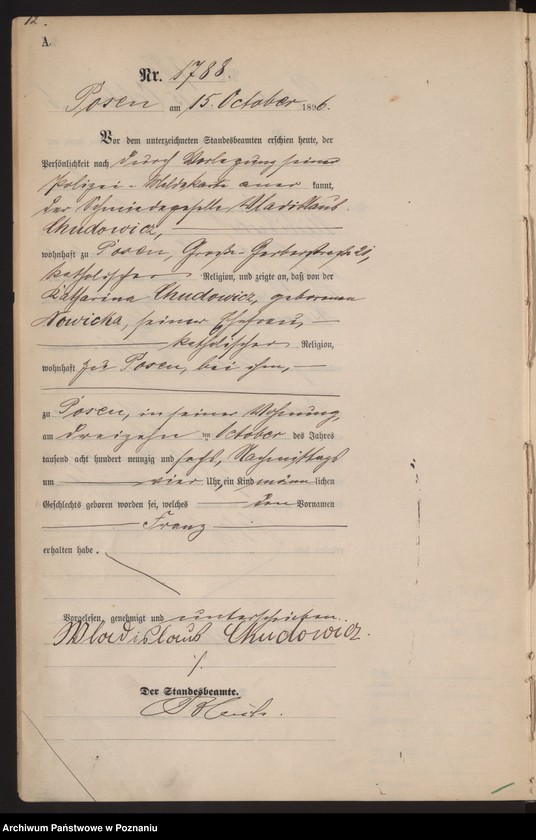 12.
A.
Nr. 1788.
Posen am 15. October 1896.
Vor dem unterzeichneten Standesbeamten erschien heute, der
Persönlichkeit nach durch Vorlegung seiner
Polizei-Meldekarte aner kannt,
der Schmiedegeselle Wladislaus
Chudowicz,
wohnhaft zu Posen, Große Gerberstraße 21,
katholischer Religion, und zeigte an, daß von der
Katharina Chudowicz, geborenen
Nowicka, seiner Ehefrau,
katholischer Religion,
wohnhaft zu Posen, bei ihm,
zu Posen, in seiner Wohnung,
am dreizehn ten October des Jahres
tausend acht hundert neunzig und sechs, Nachmittags
um vier Uhr, ein Kind männlichen
Geschlechts geboren worden sei, welches den Vornamen
Franz
erhalten habe.
Vorgelesen, genehmigt und unterschrieben.
Wladislaus Chudowicz.
Der Standesbeamte.
Archiwum Państwowe w Poznaniu